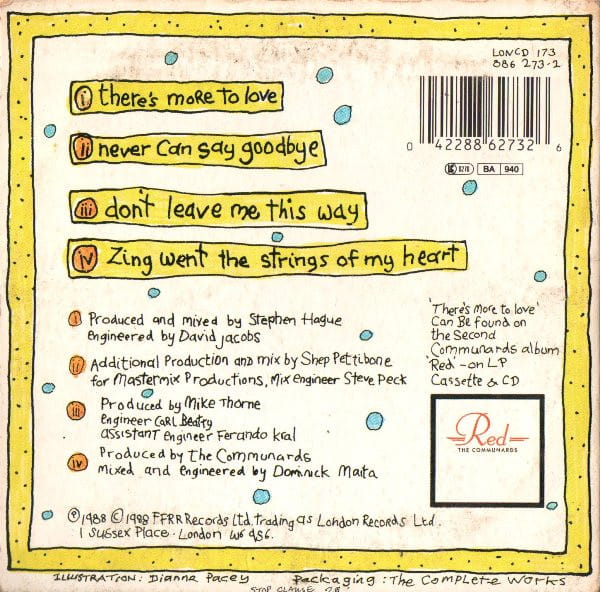 LONCD 173
886 273-2
i there's more to love
ii never can say goodbye
iii don't leave me this way
iv Zing went the strings of my heart
0 42288 62732 6
BA 940
i Produced and mixed by Stephen Hague
engineered by David Jacobs
ii Additional Production and mix by Shep Pettibone
for Mastermix Productions, Mix Engineer Steve Peck
iii Produced by Mike Thorne
Engineer Carl Beatty
assistant engineer Ferando Kral
iv Produced by the Communards
mixed and engineered by Dominick Maita
'There's more to love'
Can Be found on
the Second
Communards album
'Red' - on LP
Cassette & CD
Red
THE COMMUNARDS
Ⓟ 1988 © 1988 FFRR Records Ltd. trading as London Records Ltd.
1 Sussex Place · London W6 9SG.
ILLUSTRATION: Dianna Pacey
Packaging: The Complete Works